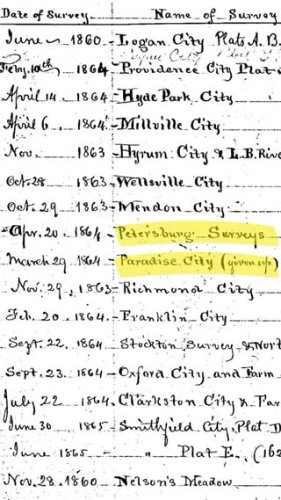 Date of Survey. Name of Survey
June 1860 - Logan City Plats A. B.
Feby. 10th 1864 - Providence City Plat
April 14 1864 - Hyde Park City
April 6 1864 - Millville City
Nov. 1863 - Hyrum City & L.B. Rive
Oct. 28 1863 - Wellsville City
Oct. 29 1863 - Mendon City
Apr. 20 1864 - Petersburg Surveys
March 29 1864 - Paradise City (given up)
Nov. 29, 1863 - Richmond City
Feb. 20 1864 - Franklin City
Sept. 22, 1864 Stockton Survey & Nort
Sept. 23, 1864 - Oxford City and Farm
July 22 1864 Clarkston City & Far
June 30 1865 - Smithfield City, Plat D
June 1865 - " Plat E. (162
Nov. 28 1860 - Nelson's Meadow